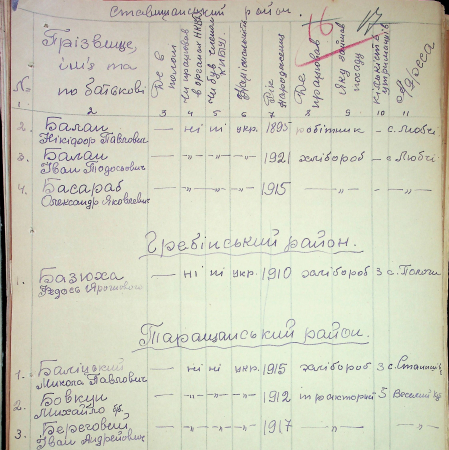 Ставищанський район.
16
№
Прізвище, ім'я та по батькові
Де в полоні
Чи працював в органах НКВД
Чи був членом КП(б)У
Національність
Рік народження
Де працював
Яку займав посаду
Кількість утриманців
Адреса
1. 2 3 4 5 6 7 8 9 10 11
2. Балан — ні ні укр. 1895 робітник — с. Любчі
Нікідор Павлович
3. Балан — " — " — " 1921 хлібороб — с. Любчі
Іван Тодосьович
4. Басараб — " — " — " 1915 — " — — " —
Олександр Яковлевич
Гребінський район.
1. Базюха — ні ні укр. 1910 хлібороб 3 с. Пологи
Федось
Таращанський район.
1. Баліцький — ні ні укр. 1915 хлібороб 3
Микола Павлович
2. Бовкун — " — " — " 1912 тракторий 5 Веселий
Михайло
3. Береговий — " — " — " 1917 — "
Іван Андрейович